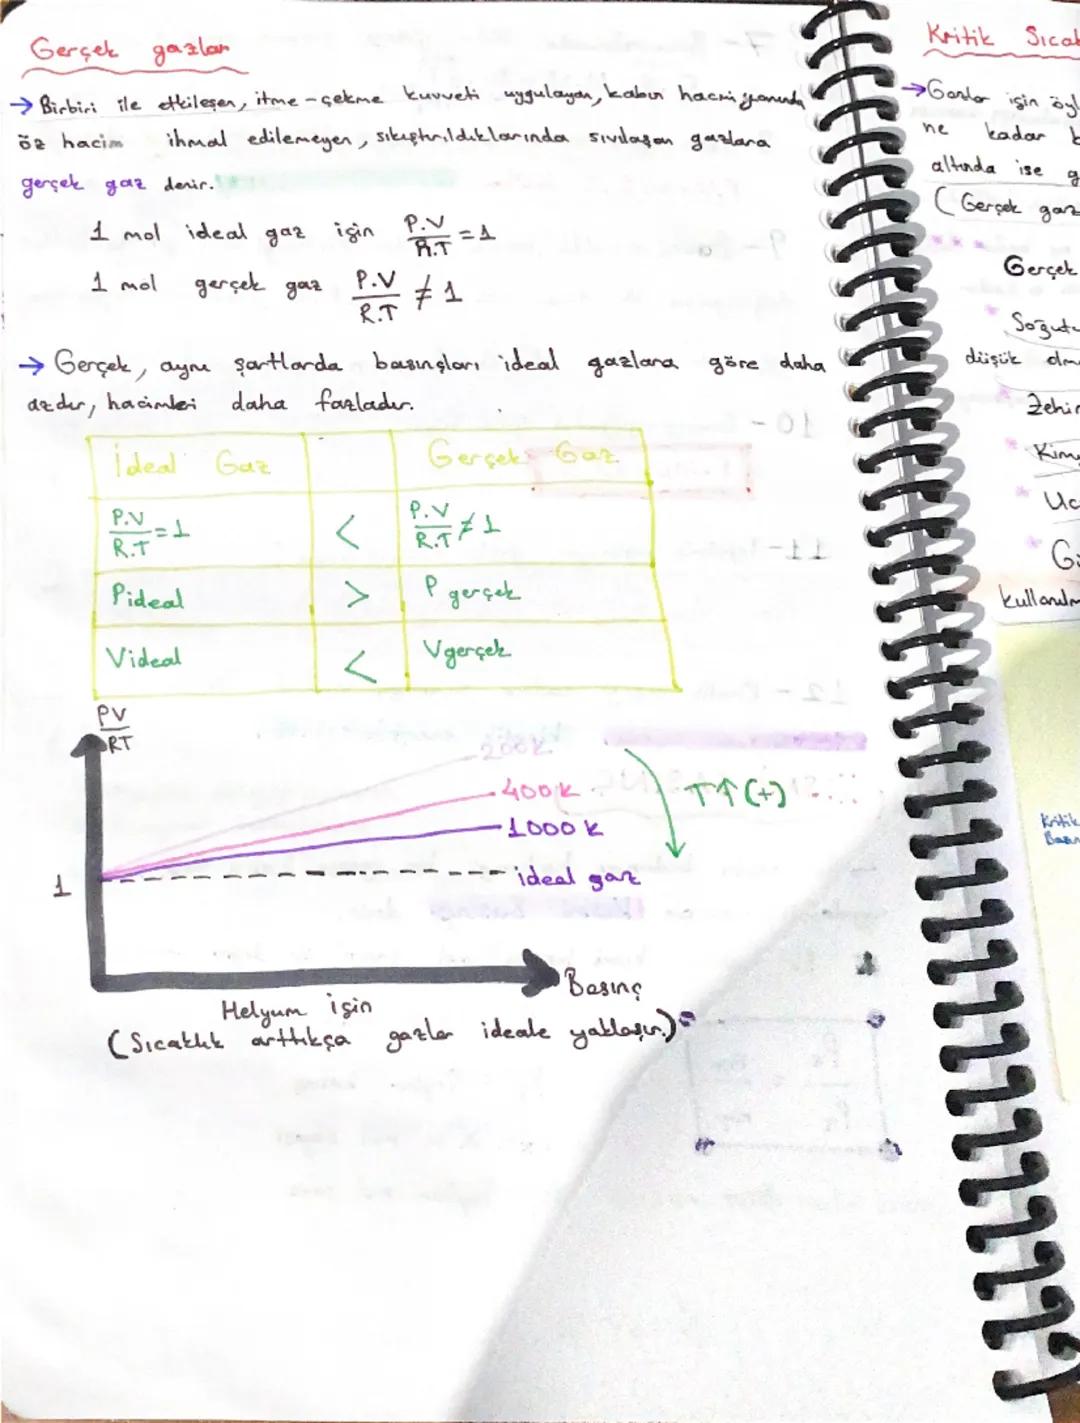 Gerçek gazlar
→ Birbiri ile etkileşen, itme-çekme kuvveti uygulayan, kabın hacmi yanında
öz hacim ihmal edilemeyen, sıkıştırıldıklarında sıvılaşan gazlara
gerçek gaz denir.
1 mol ideal gaz için P.V/R.T = 1
1 mol gerçek gaz P.V/R.T ≠ 1
→ Gerçek, aynı şartlarda basınçları ideal gazlara göre daha
azdır, hacimleri daha fazladır.
İdeal Gaz Gerçek Gaz
P.V/R.T = 1 < P.V/R.T ≠ 1
Pideal > P gerçek
Videal < Vgerçek
PV/RT
200K
400K
1000 K
1 ideal gaz
T↑↑ (+)
Basınç
Helyum için
(Sıcaklık arttıkça gazlar ideale yaklaşır.)
Kritik
→ Gazlar için
ne kadar
altında ise
(Gerçek gaz
Gerçek
düşük
Kritik